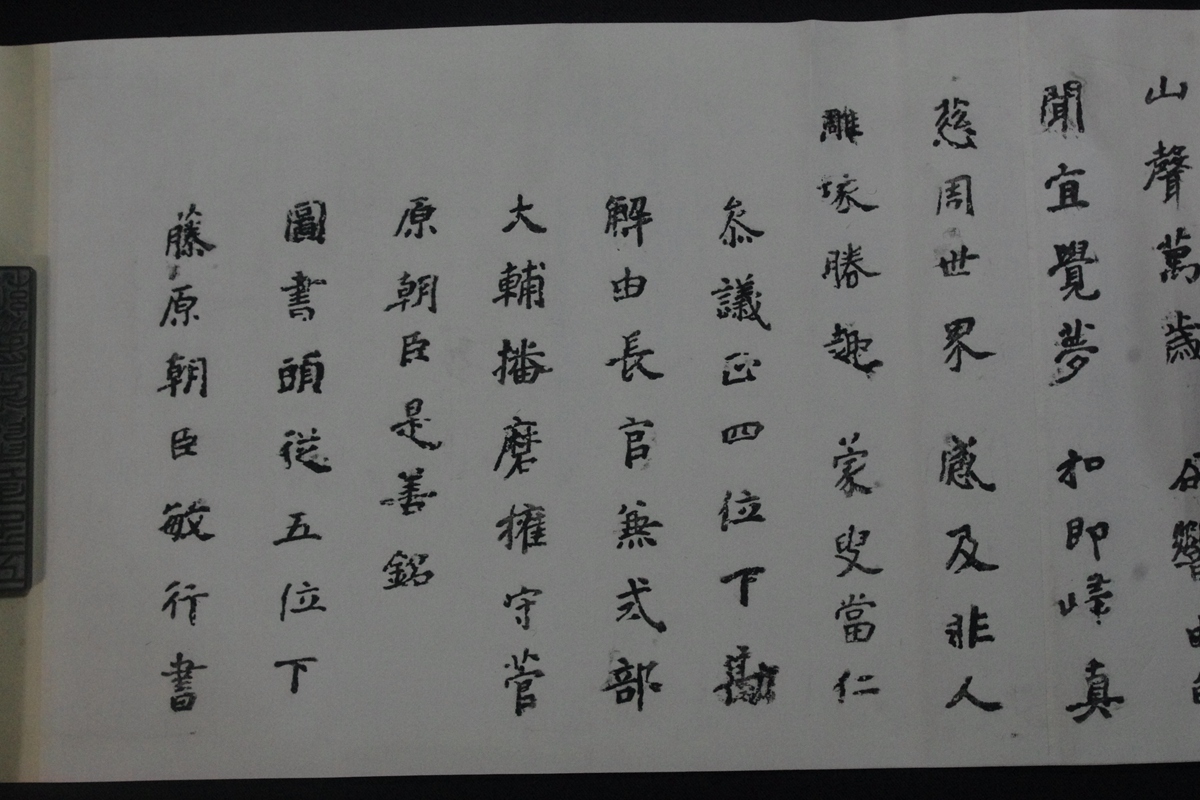 山聲萬歲
聞宜覺夢 扣即峰真
慈周世界 感及非人
雕琢勝趣 蒙叟當仁
叅議正四位下勘
解由長官兼式部
大輔播磨權守菅
原朝臣是善銘
圖書頭從五位下
藤原朝臣敏行書